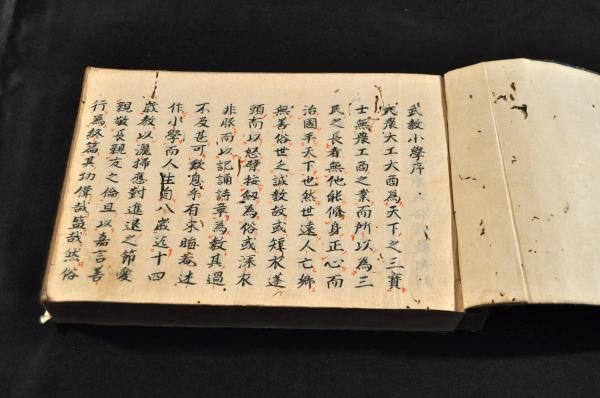 武教小學序
大農大工大商為天下之三寶
士無農工商之業而所以為三
民之長者無他能脩身正心而
治國平天下也然世遠人亡鄉
無善俗世乏誠教故或短衣蓬
頭而以怒臂按劔為俗或深衣
非服而以記誦詩章為教其過
不及甚可歎息乎有宋晦菴述
作小學而人生自八歳迄十四
歳教以灑掃應對進退之節愛
親敬長親友之倫且以嘉言善
行為終篇其功偉哉盛哉然俗